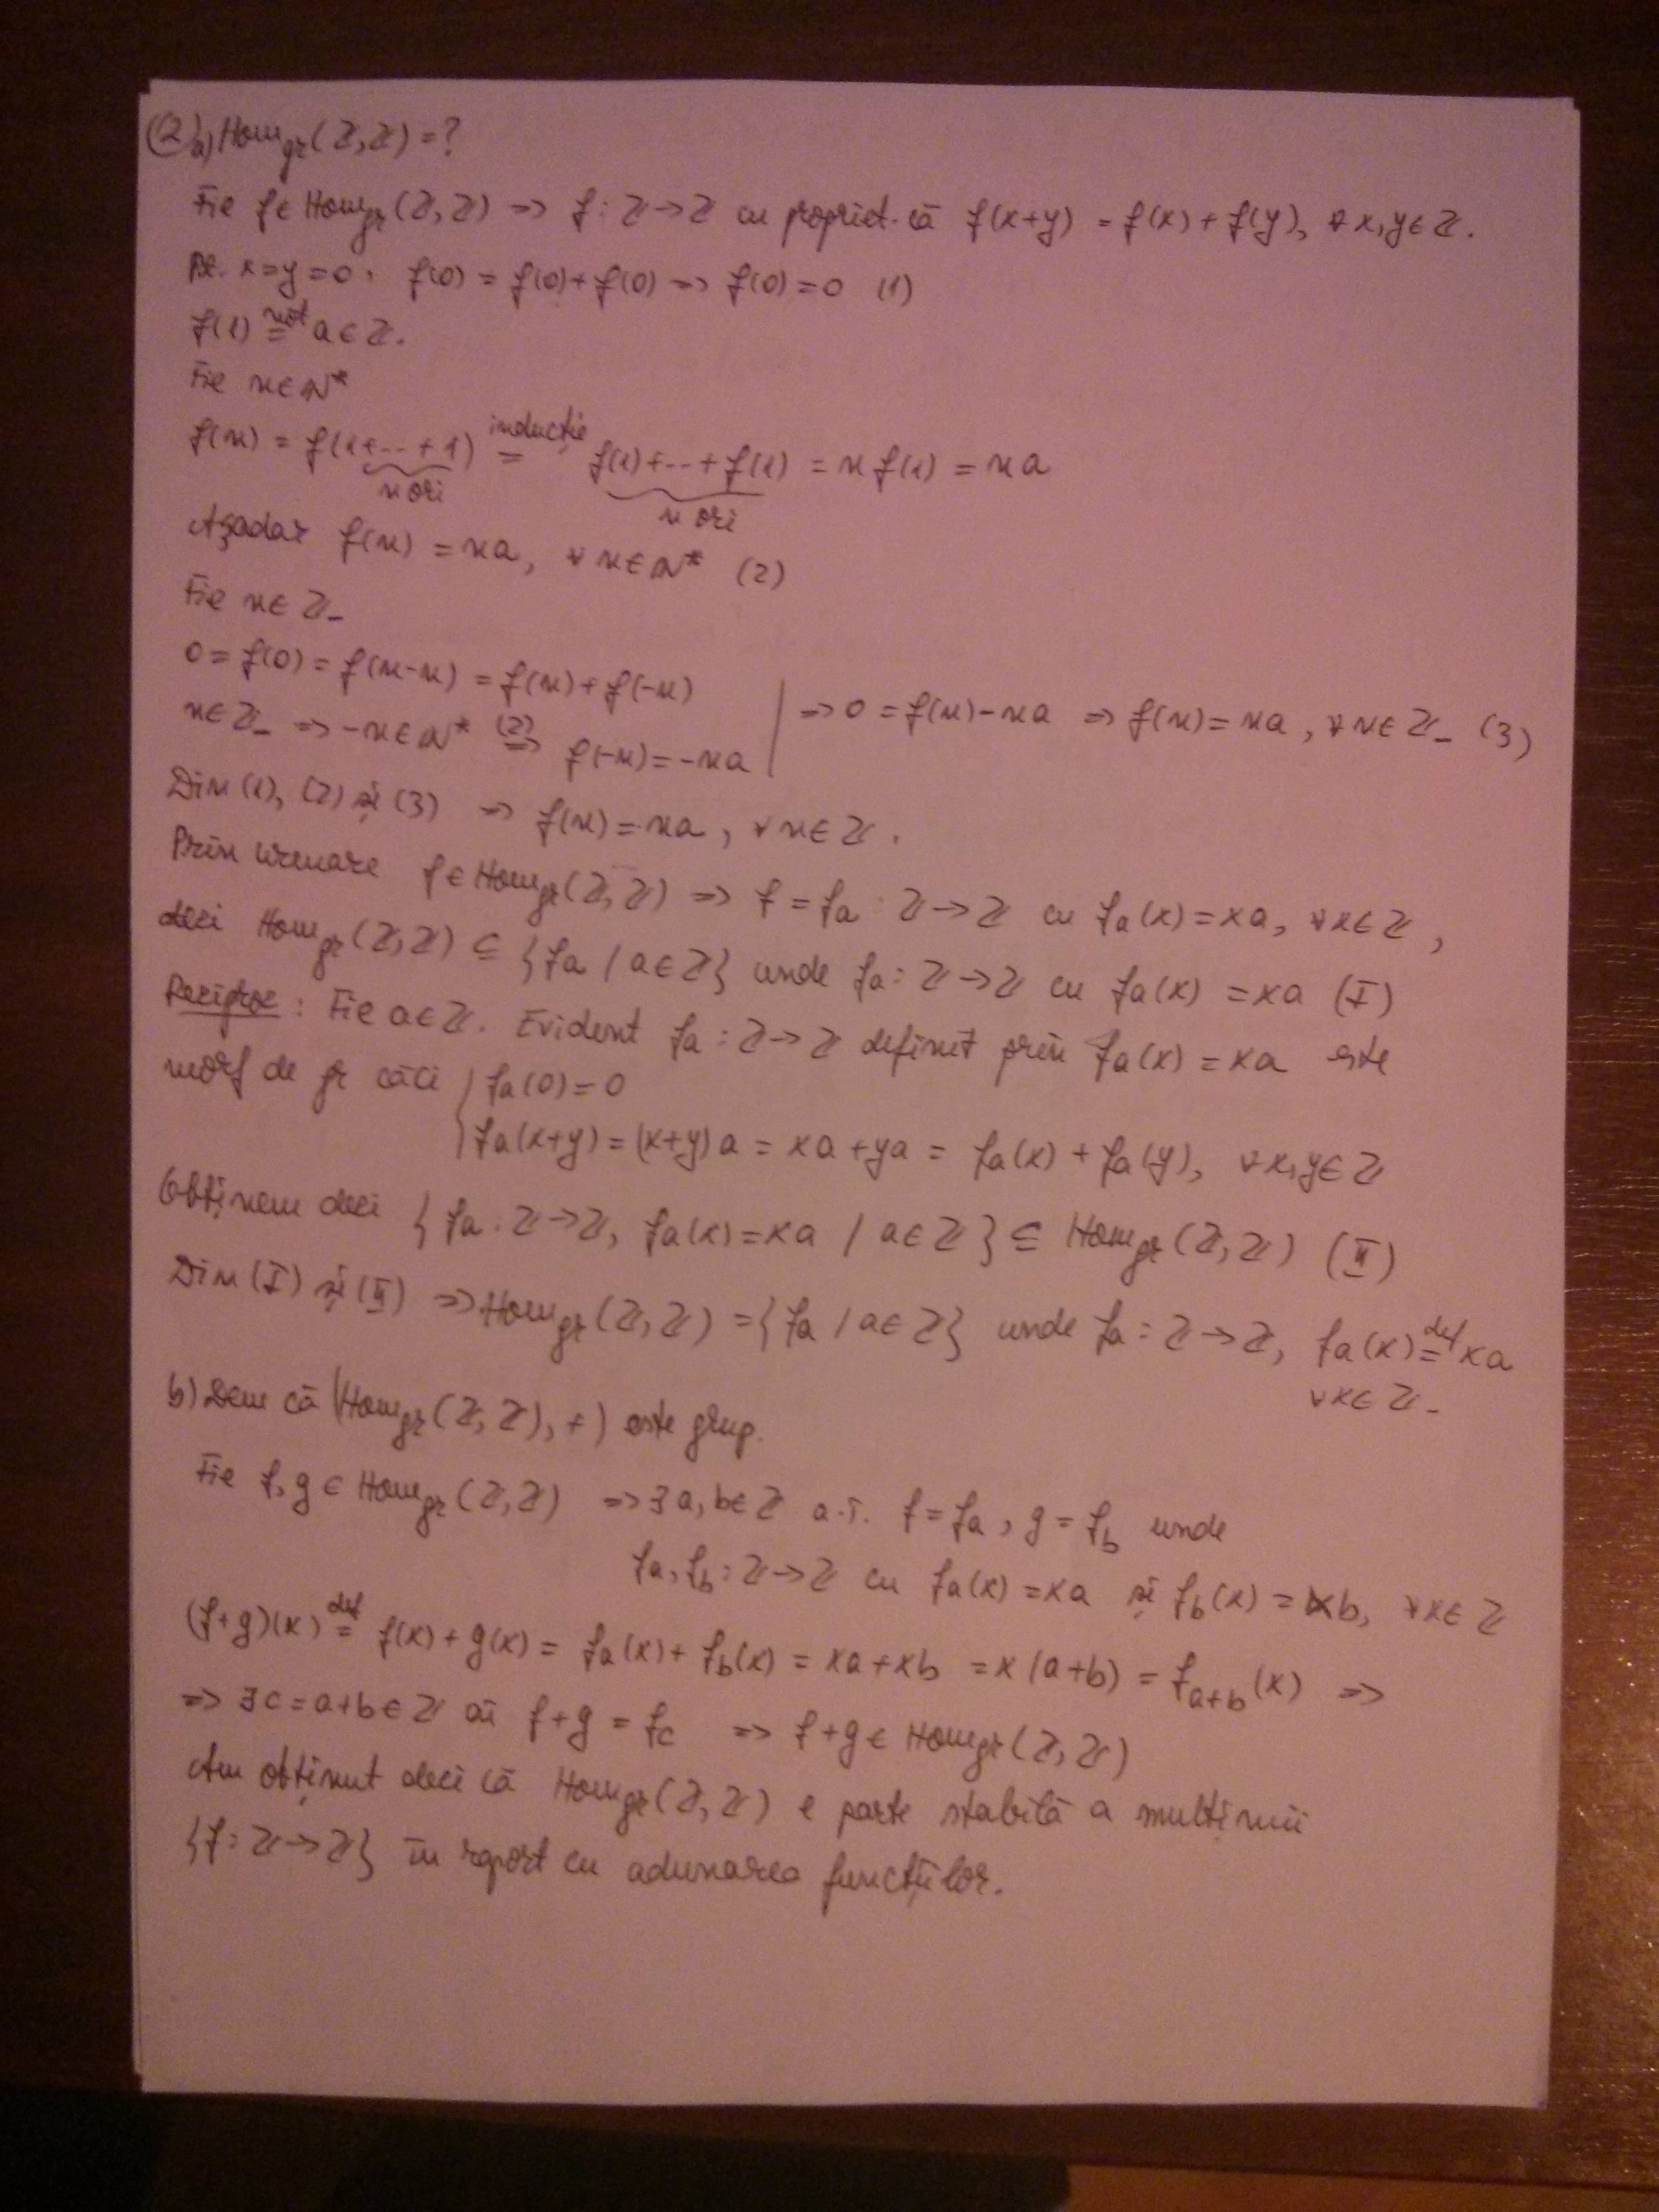 (2) a) Hom_gr(ℤ,ℤ) = ?
Fie f ∈ Hom_gr(ℤ,ℤ) => f: ℤ→ℤ cu propriet. că f(x+y) = f(x) + f(y), ∀ x,y ∈ ℤ.
Pt. x=y=0, f(0) = f(0)+f(0) => f(0)=0 (1)
f(1) =^not a ∈ ℤ.
Fie n ∈ ℕ*
f(n) = f(1+...+1) =^inducție f(1)+...+f(1) = n f(1) = na
n ori n ori
Așadar f(n) = na, ∀ n ∈ ℕ* (2)
Fie n ∈ ℤ_
0 = f(0) = f(n-n) = f(n) + f(-n)
n ∈ ℤ_ => -n ∈ ℕ* =>^(2) f(-n) = -na | => 0 = f(n) - na => f(n) = na, ∀ n ∈ ℤ_ (3)
Din (1), (2) și (3) => f(n) = na, ∀ n ∈ ℤ.
Prin urmare f ∈ Hom_gr(ℤ,ℤ) => f = f_a : ℤ→ℤ cu f_a(x) = xa, ∀x ∈ ℤ,
deci Hom_gr(ℤ,ℤ) ⊆ {f_a / a ∈ ℤ} unde f_a : ℤ→ℤ cu f_a(x) = xa (I)
Reciproc : Fie a ∈ ℤ. Evident f_a : ℤ→ℤ definit prin f_a(x) = xa este
morf de gr căci { f_a(0) = 0
f_a(x+y) = (x+y)a = xa + ya = f_a(x) + f_a(y), ∀ x,y ∈ ℤ
Obținem deci { f_a : ℤ→ℤ, f_a(x) = xa / a ∈ ℤ } ⊆ Hom_gr(ℤ,ℤ) (II)
Din (I) și (II) => Hom_gr(ℤ,ℤ) = {f_a / a ∈ ℤ} unde f_a : ℤ→ℤ, f_a(x) =^def xa
∀x ∈ ℤ.
b) Dem că (Hom_gr(ℤ,ℤ), +) este grup.
Fie f, g ∈ Hom_gr(ℤ,ℤ) => ∃ a, b ∈ ℤ a.î. f = f_a, g = f_b unde
f_a, f_b : ℤ→ℤ cu f_a(x) = xa și f_b(x) = xb, ∀x ∈ ℤ
(f+g)(x) =^def f(x) + g(x) = f_a(x) + f_b(x) = xa + xb = x(a+b) = f_{a+b}(x) =>
=> ∃ c = a+b ∈ ℤ aî f+g = f_c => f+g ∈ Hom_gr(ℤ,ℤ)
Am obținut deci că Hom_gr(ℤ,ℤ) e parte stabilă a mulțimii
{f : ℤ→ℤ} în raport cu adunarea funcțiilor.